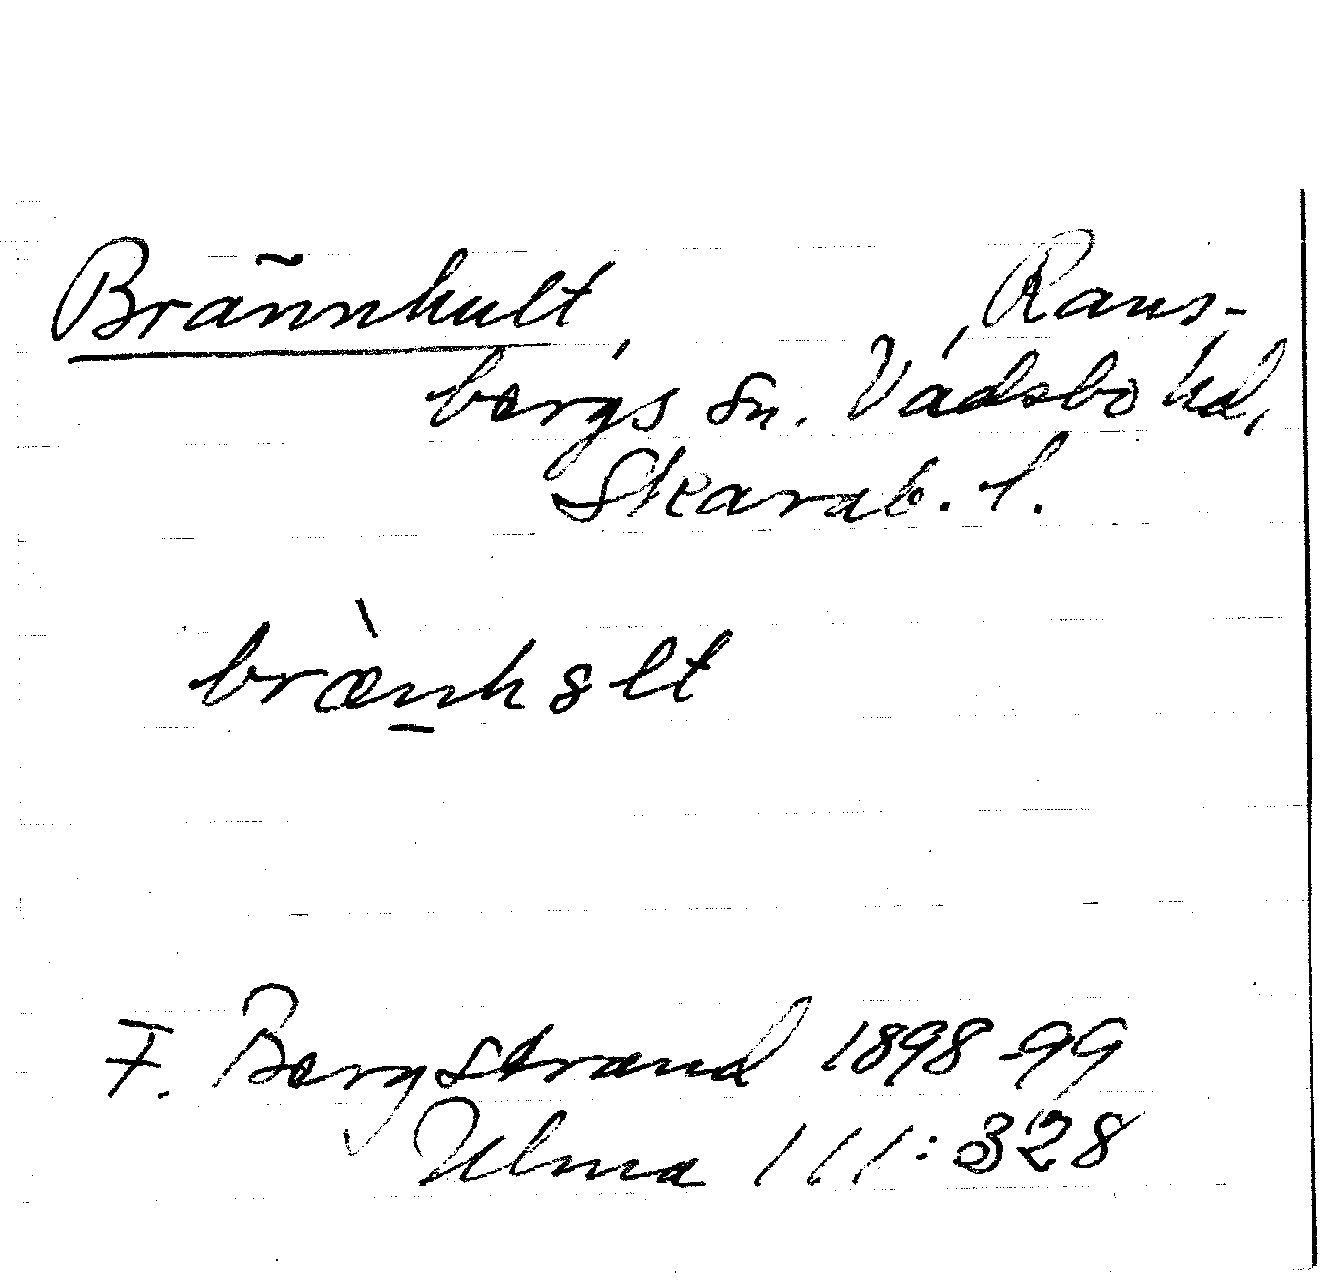 Brännhult, Rans-
bergs sn. Vadsbo hd,
Skarab. l.
bræ̀nhslt
F. Bergstrand 1898-99
Ulma 111:328